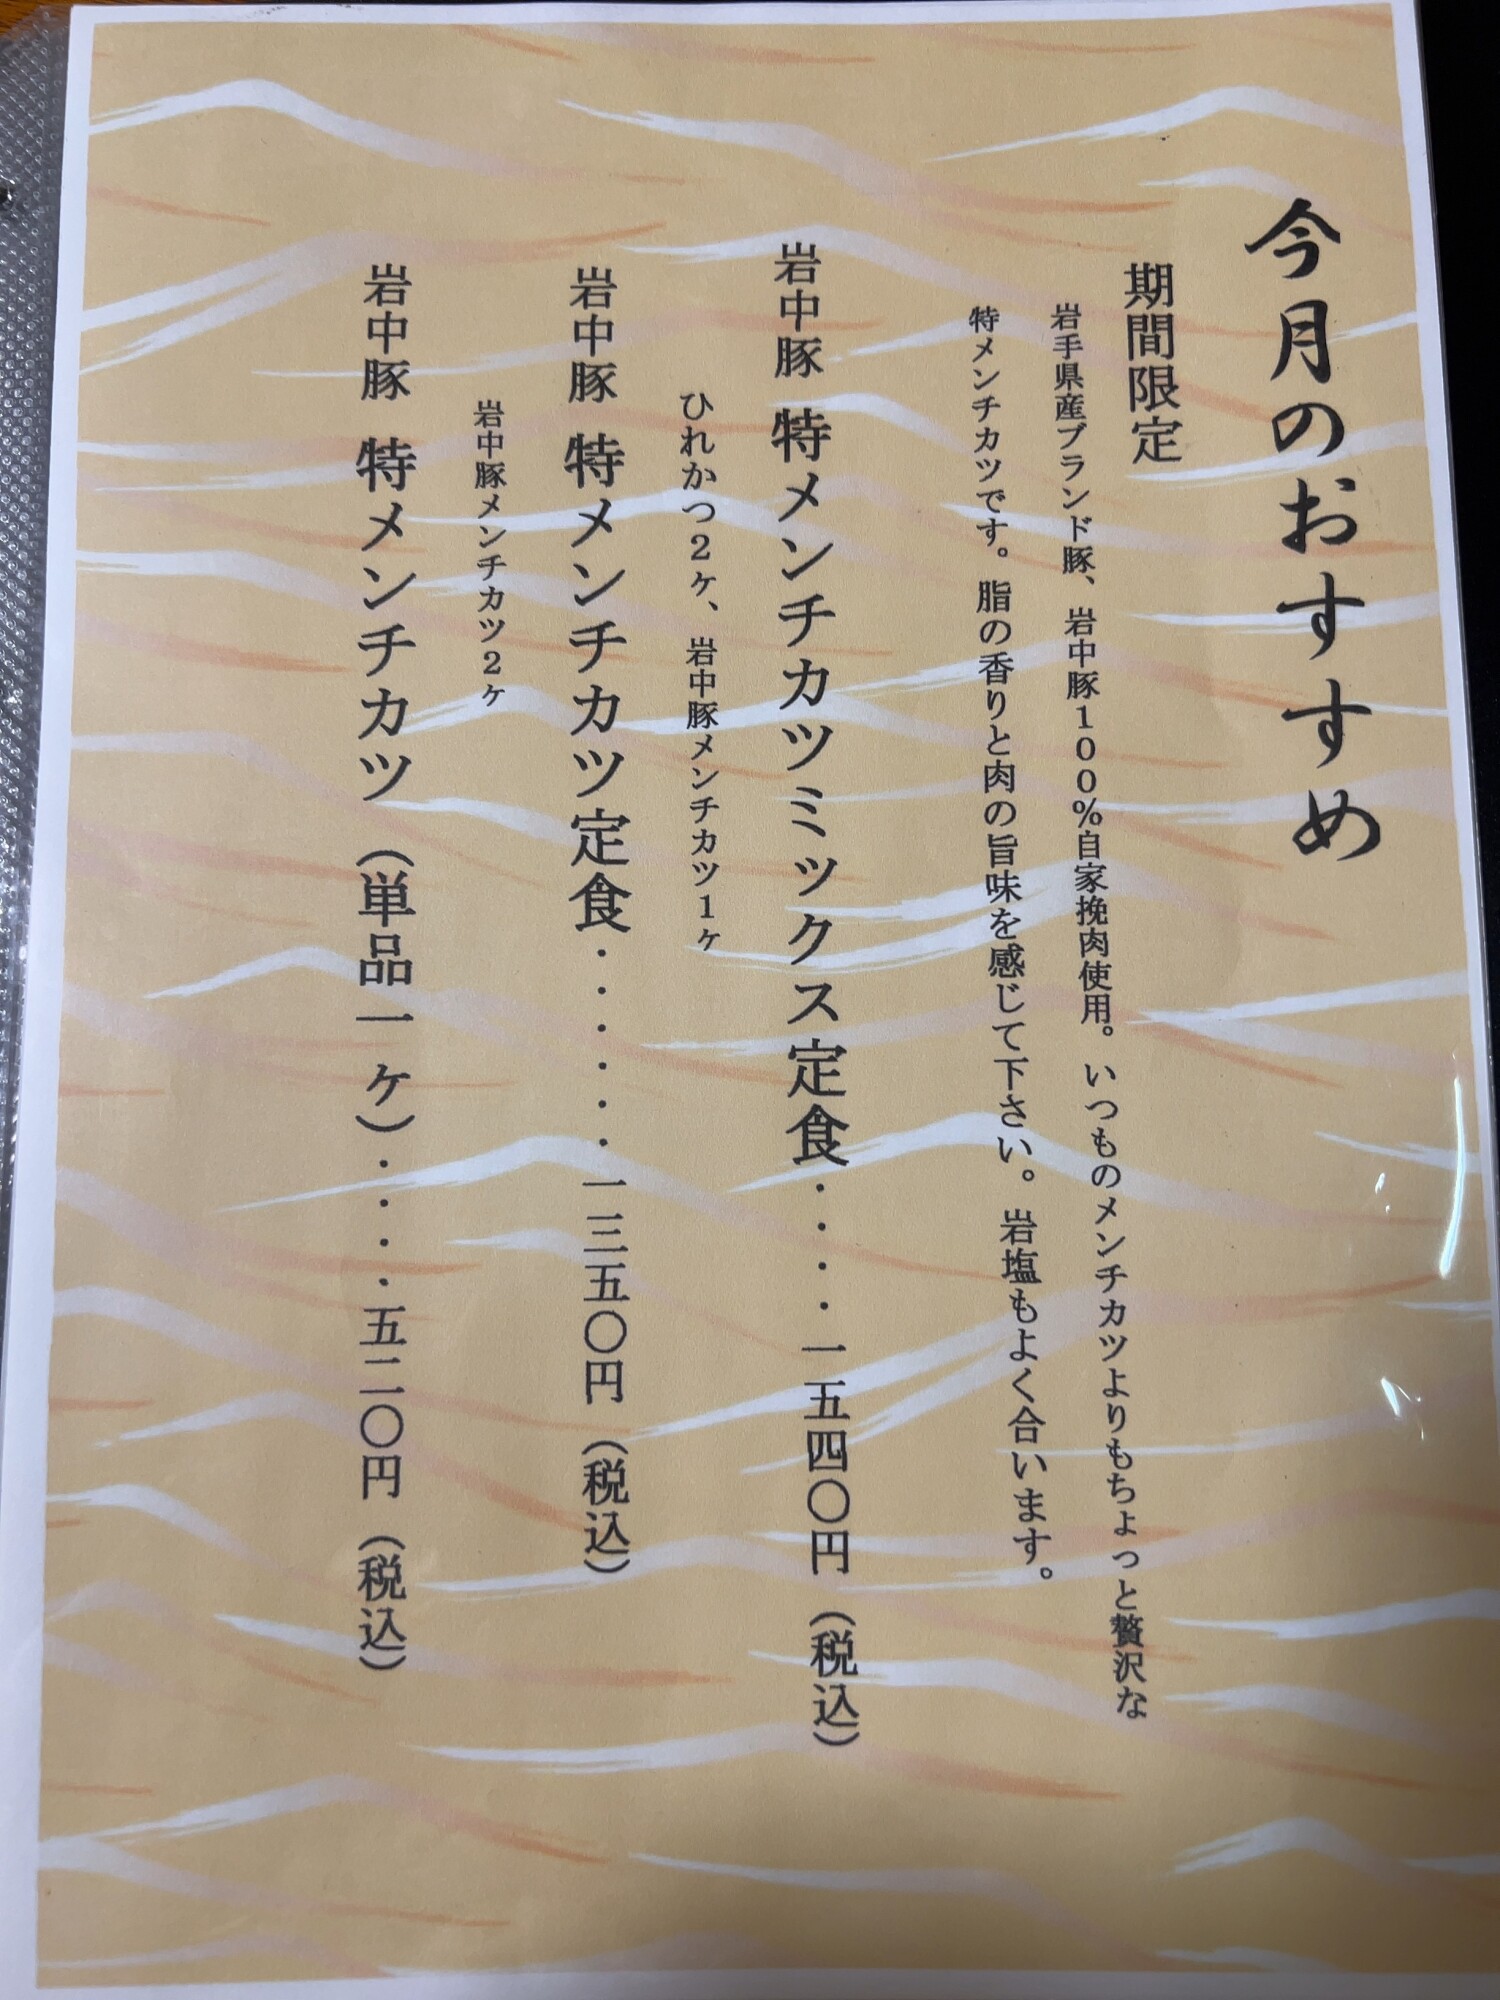 今月のおすすめ
期間限定
岩手県産ブランド豚、岩中豚100%自家挽肉使用。いつものメンチカツよりもちょっと贅沢な
特メンチカツです。脂の香りと肉の旨味を感じて下さい。岩塩もよく合います。
岩中豚 特メンチカツミックス定食・・・・一五四〇円（税込）
ひれかつ2ヶ、岩中豚メンチカツ1ヶ
岩中豚 特メンチカツ定食・・・・・・一三五〇円（税込）
岩中豚メンチカツ2ヶ
岩中豚 特メンチカツ（単品一ヶ）・・・・五二〇円（税込）